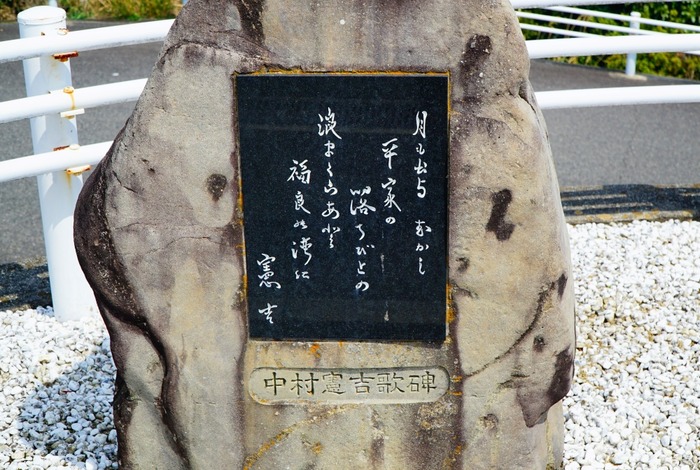 月も出与 むかし
平家の
落ちびとの
浪まくらあと
福良の湾に
憲吉
中村憲吉歌碑